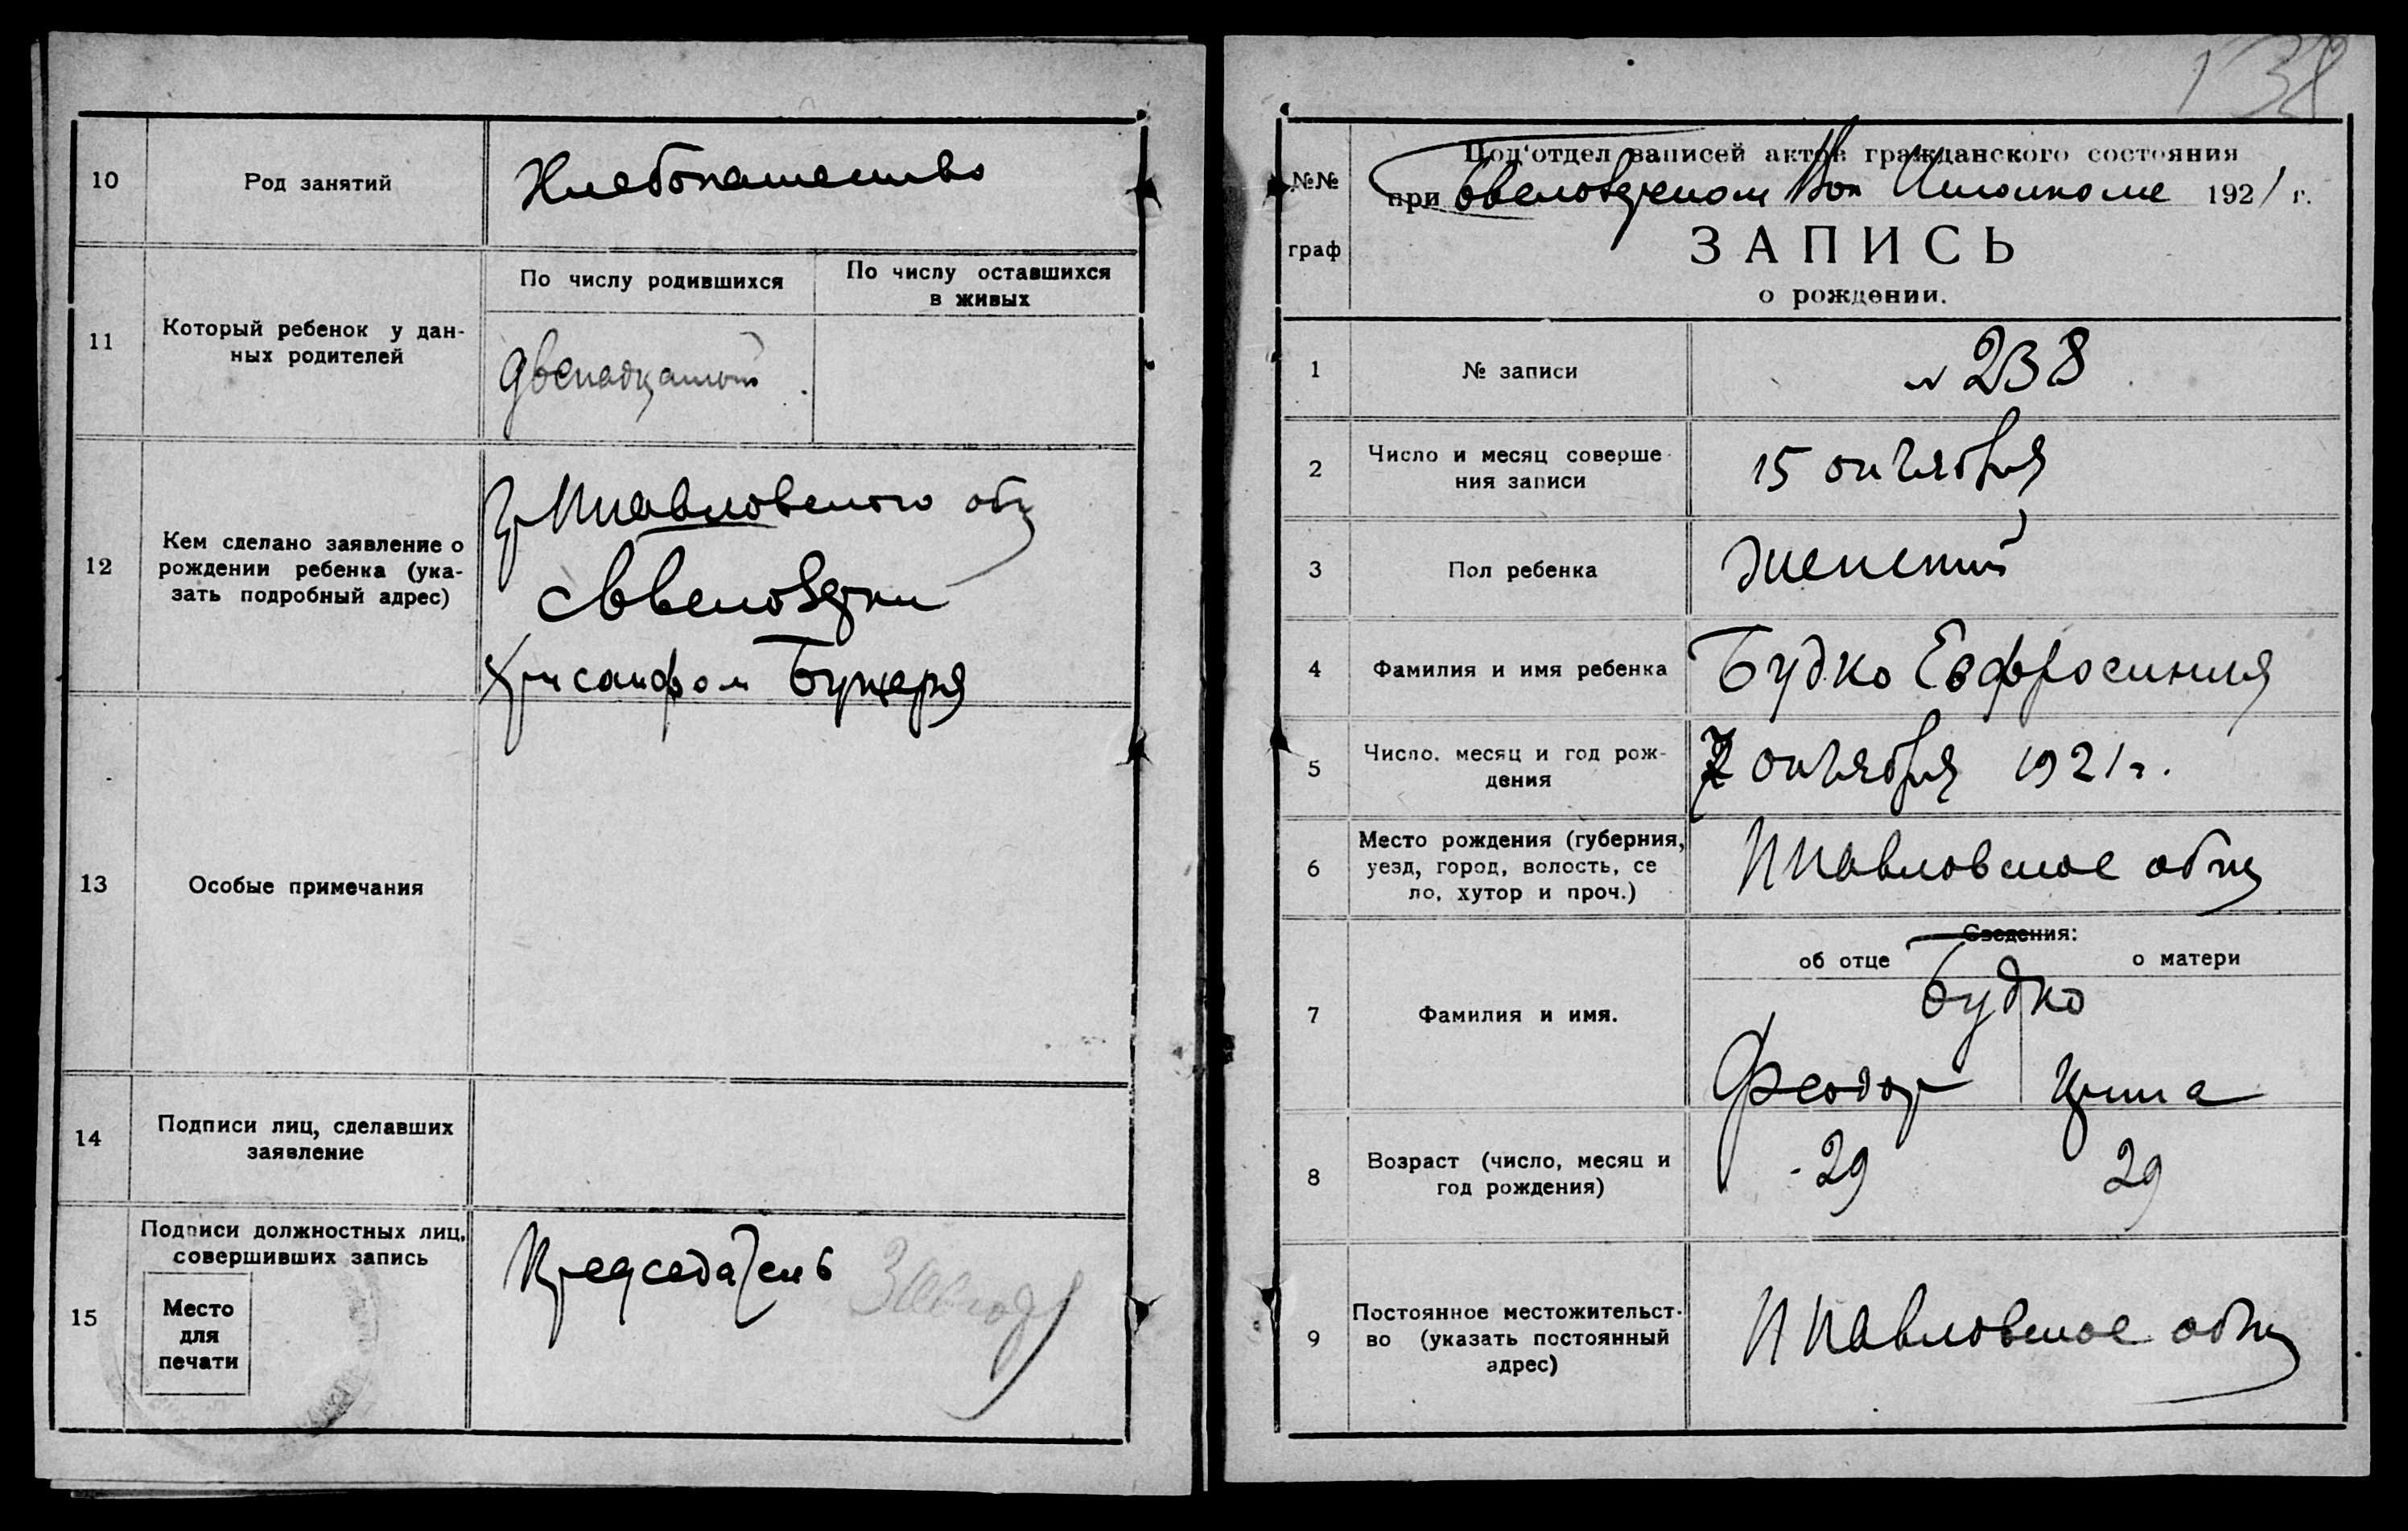 10
Род занятий
Хлебопашество
11
Который ребенок у дан-
ных родителей
По числу родившихся
По числу оставшихся
в живых
двенадцатый
12
Кем сделано заявление о
рождении ребенка (ука-
зать подробный адрес)
Ппавловского общ
Хрисанфом
13
Особые примечания
14
Подписи лиц, сделавших
заявление
15
Подписи должностных лиц,
совершивших запись
Место
для
печати
Председатель
138
№№
граф
Под'отдел записей актов гражданского состояния
при Вол Исполкоме 1921 г.
ЗАПИСЬ
о рождении.
1
№ записи
№ 238
2
Число и месяц соверше-
ния записи
15 октября
3
Пол ребенка
женский
4
Фамилия и имя ребенка
Будко Евфросиния
5
Число. месяц и год рож-
дения
7 октября 1921 г.
6
Место рождения (губерния,
уезд, город, волость, се
ло, хутор и проч.)
Ппавловское общ
Сведения:
об отце
о матери
7
Фамилия и имя.
Будко
Феодор
Ирина
8
Возраст (число, месяц и
год рождения)
29
29
9
Постоянное местожительст-
во (указать постоянный
адрес)
Ппавловское общ